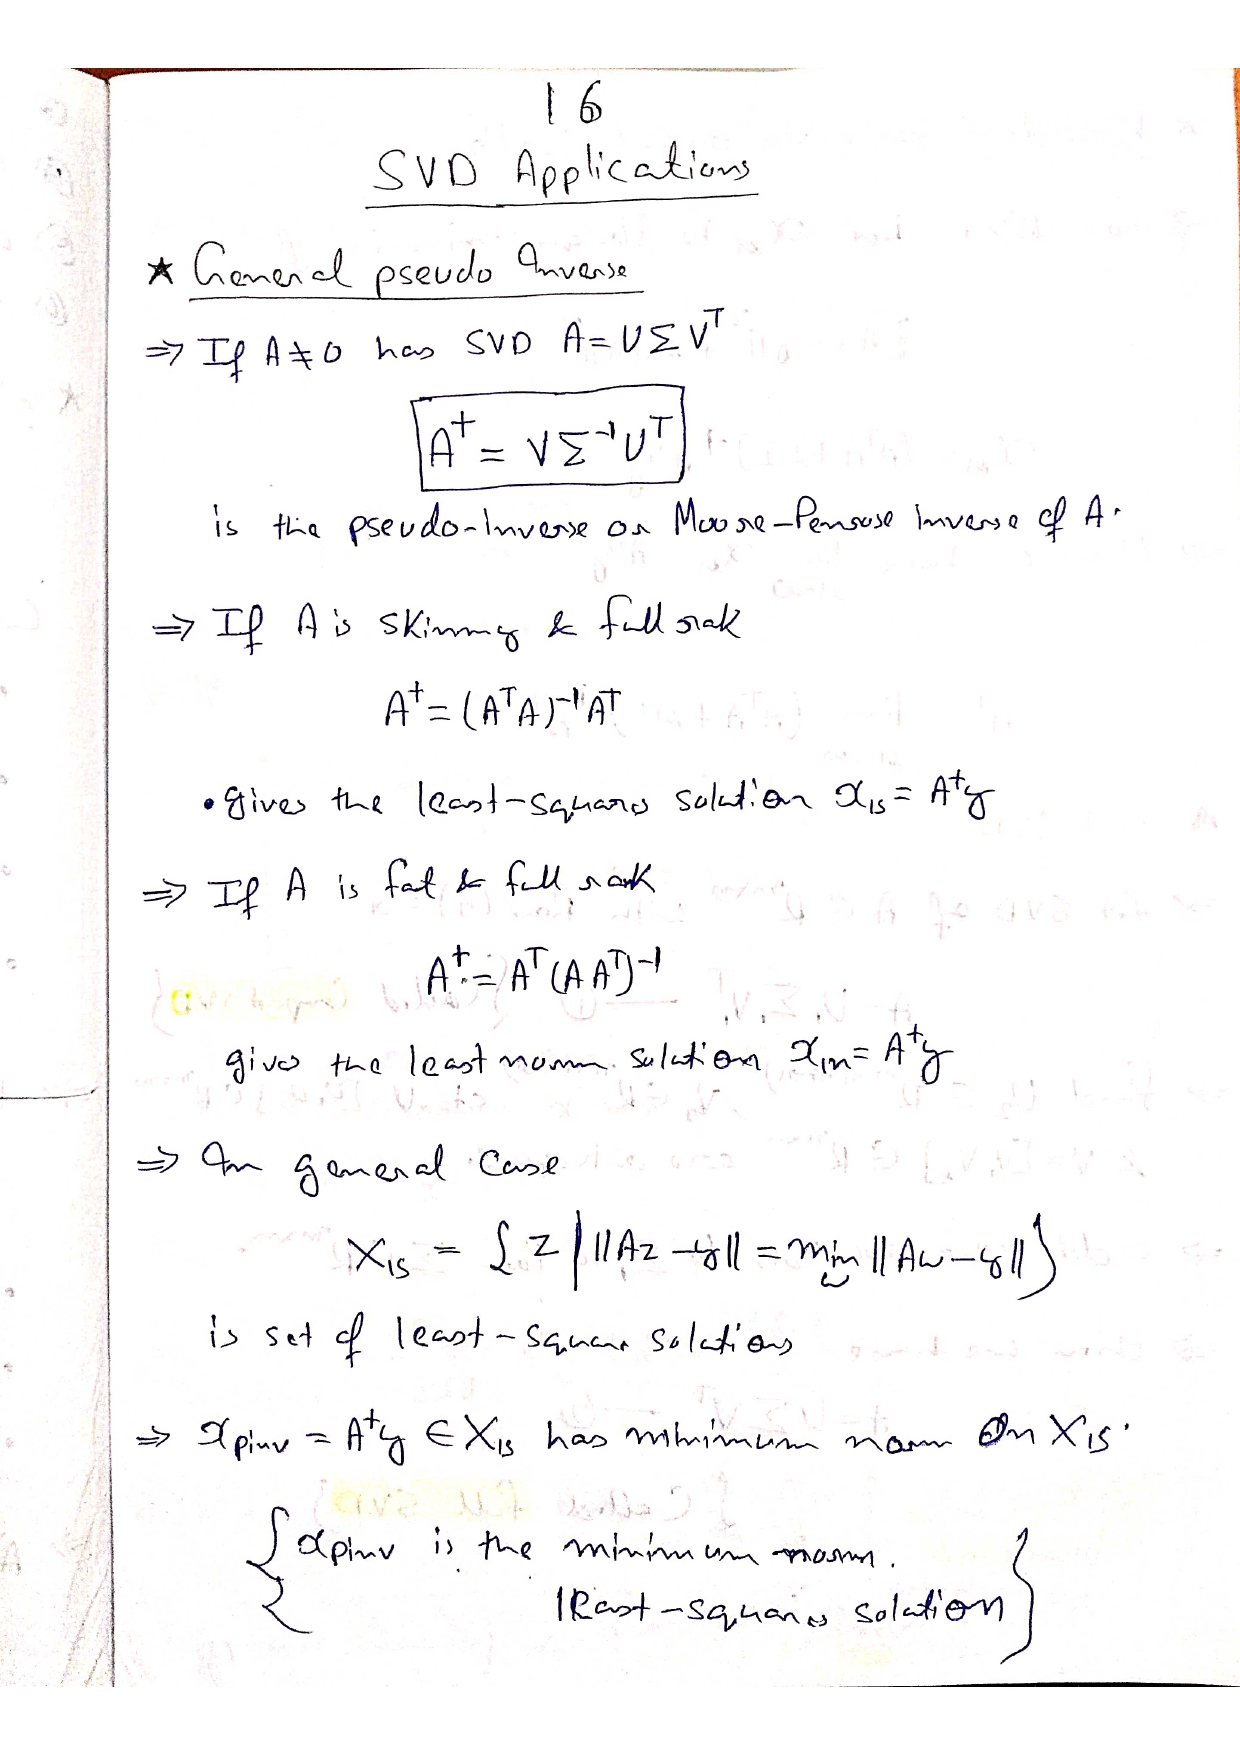 16
SVD Applications
★ General pseudo Inverse
⇒ If A ≠ 0 has SVD A = UΣV^T
A^† = VΣ^-1U^T
is the pseudo-Inverse or Moore-Penrose Inverse of A.
⇒ If A is skinny & full rak
A^† = (A^TA)^-1A^T
• gives the least-squares solution x_ls = A^†y
⇒ If A is fat & full rank
A^† = A^T(AA^T)^-1
gives the least norm solution x_ln = A^†y
⇒ In general case
X_ls = { z | ||Az - y|| = min_w ||Aw - y|| }
is set of least-square solutions
⇒ x_pinv = A^†y ∈ X_ls has minimum norm On X_ls.
{ x_pinv is the minimum norm.
least-squares solution }